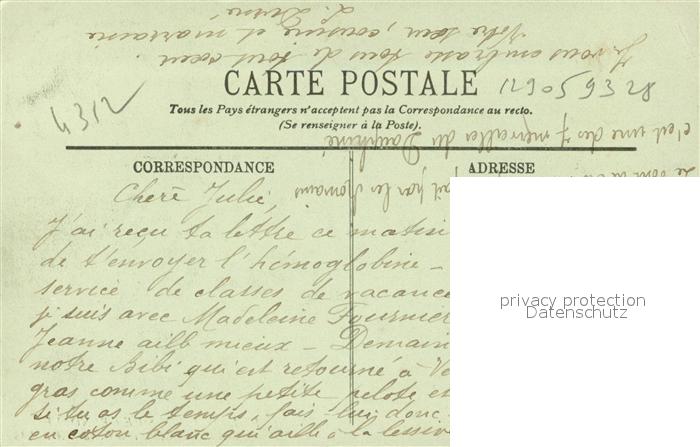 Je vous embrasse tous de tout coeur.
Votre soeur, cousine et marraine
L.
CARTE POSTALE
129059328
4312
Tous les Pays étrangers n'acceptent pas la Correspondance au recto.
(Se renseigner à la Poste).
c'est une des 7 merveilles du Dauphiné
Le pont
fait par les Romains
CORRESPONDANCE
ADRESSE
Chère Julie,
J'ai reçu ta lettre ce matin
de t'envoyer l'hémoglobine –
service de classes de vacance
je suis avec Madeleine Fournier
Jeanne aille mieux – Demain
notre Bibi qui est retourné à
gras comme une petite pelote et
si tu as le temps, fais-lui donc
en coton blanc qui aille à la lessive
privacy protection
Datenschutz